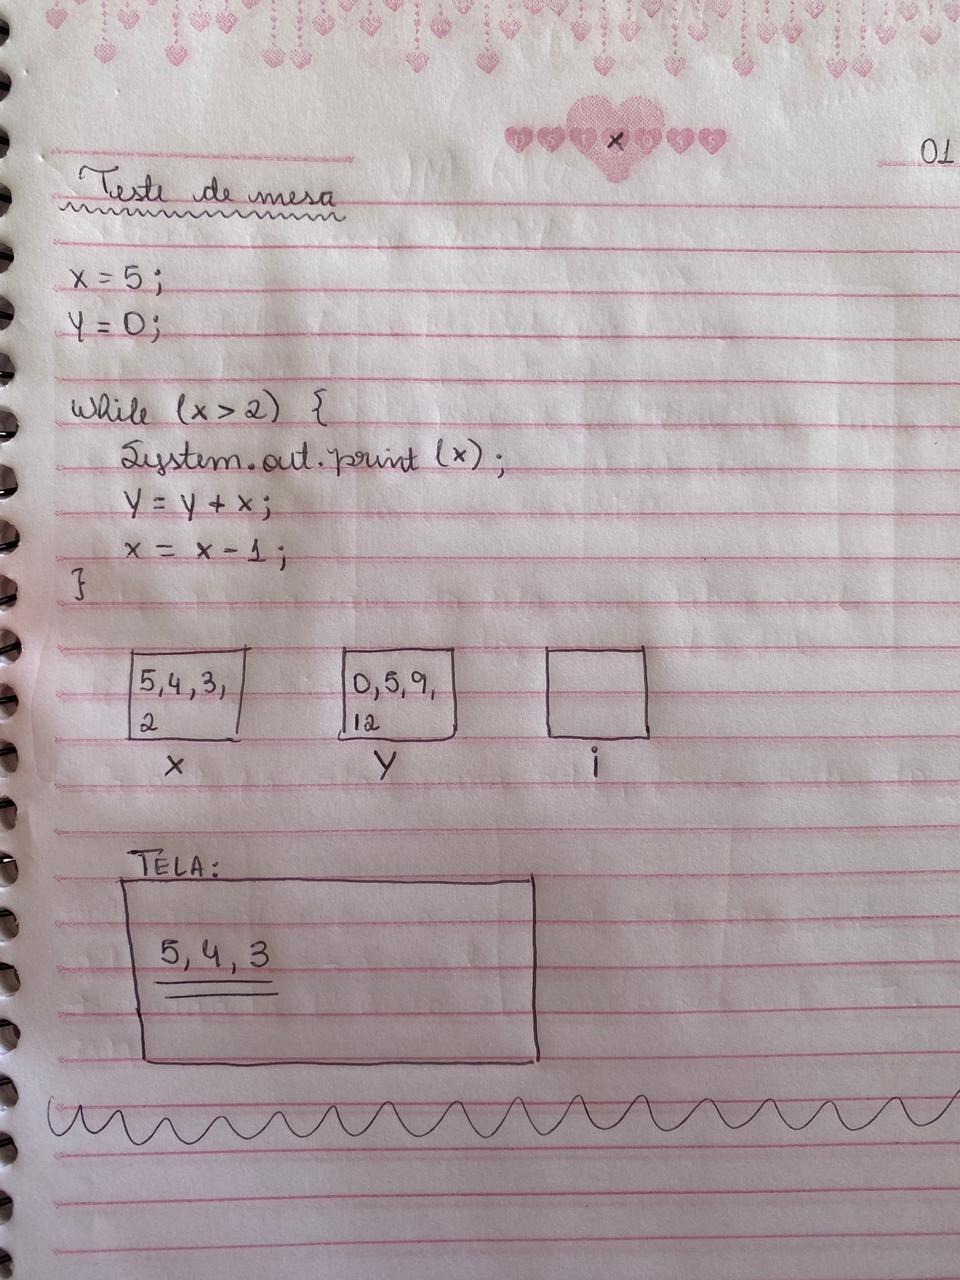 01
Teste de mesa
x = 5;
y = 0;
while (x > 2) {
System.out.print (x);
y = y + x;
x = x - 1;
}
5,4,3, 0,5,9,
2 12
x y i
TELA:
5, 4, 3